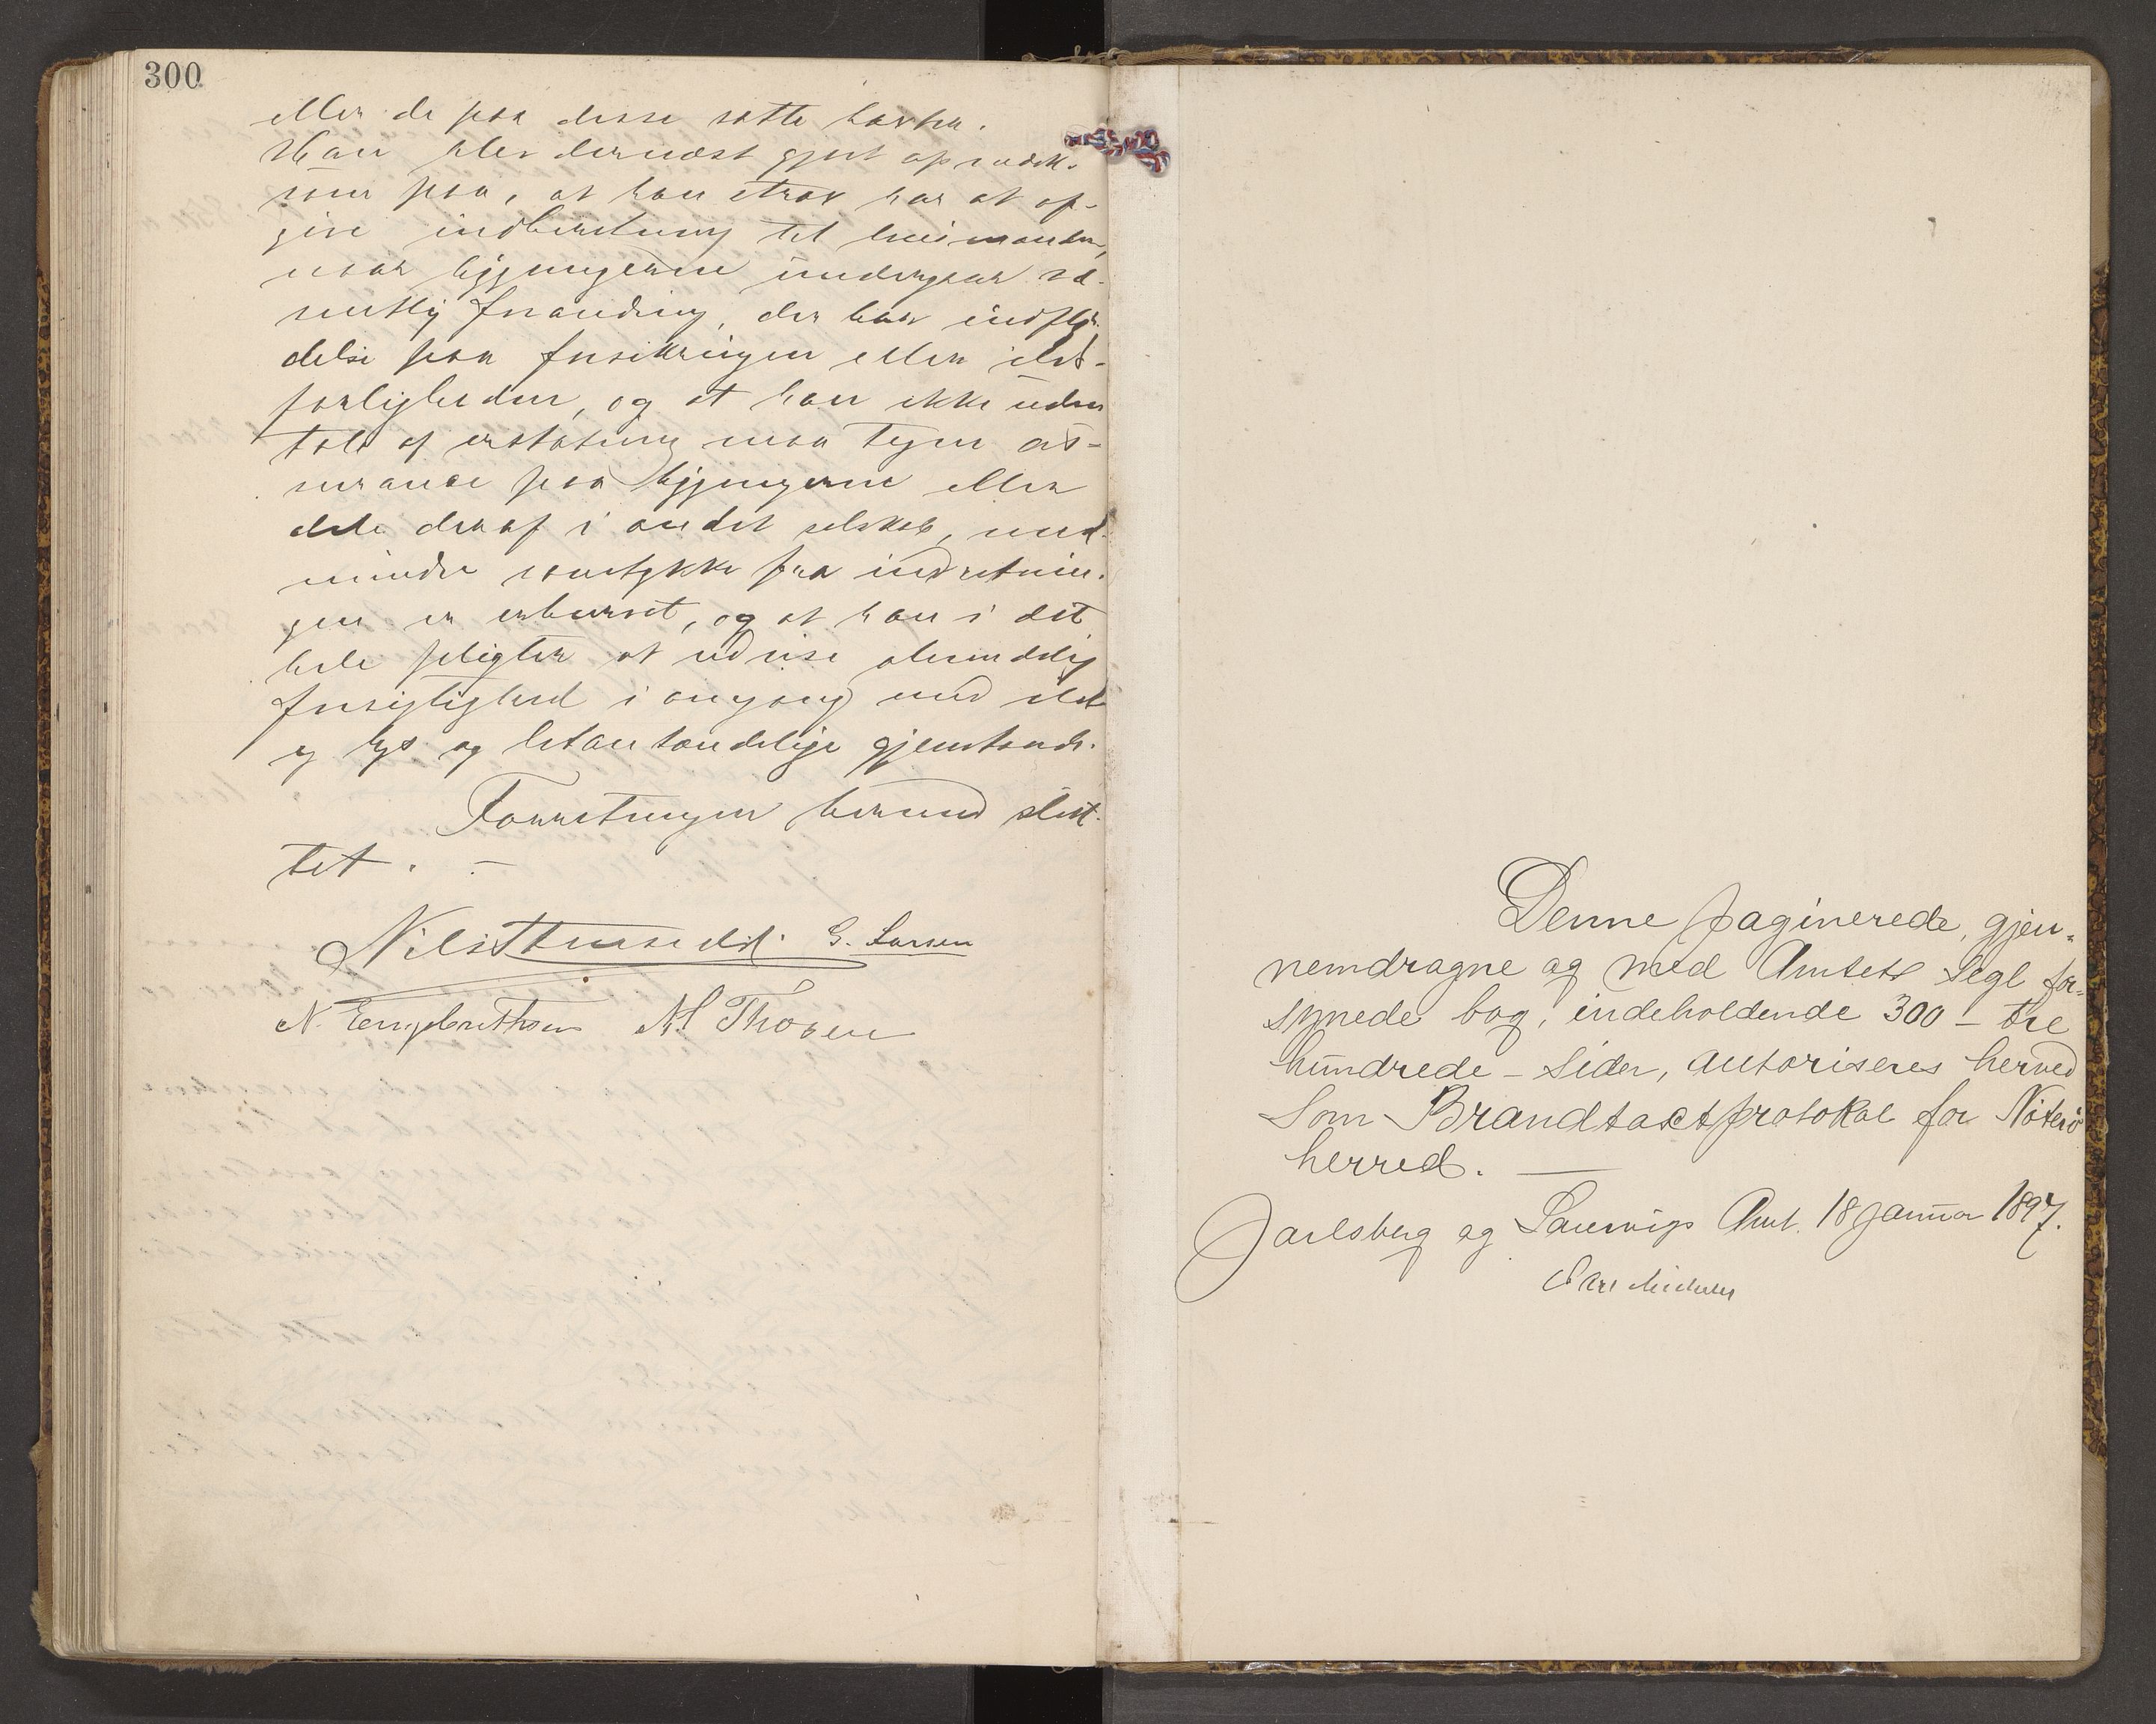 300
eller de paa disse satte taxter.
Han blev dernæst gjort opmærk-
som paa, at han strax har at op-
give indberetning til lensmanden,
naar bygningerne undergaar væ-
sentlig forandring, der har indfly-
delse paa forsikringen eller ilds-
farligheden, og at han ikke uden
tab af erstatning maa tegne as-
surance paa bygningerne eller
dele deraf i andet selskab, med
mindre samtykke fra indretnin-
gen er erhvervet, og at han i det
hele pligter at udvise almindelig
forsigtighed i omgang med ild
og lys og letantændelige gjenstande.
Forretningen hermed slut-
tet. –
Nils G. Larsen
N. Engebrethsen M Thoren
Denne paginerede, gjen-
nemdragne og med Amtets Segl for-
synede bog, indeholdende 300 – tre
hundrede – Sider, autoriseres herved
som Brandtaxtprotokol for Nöterö
herred. —
Jarlsberg og Laurvigs Amt. 18 Januar 1897.